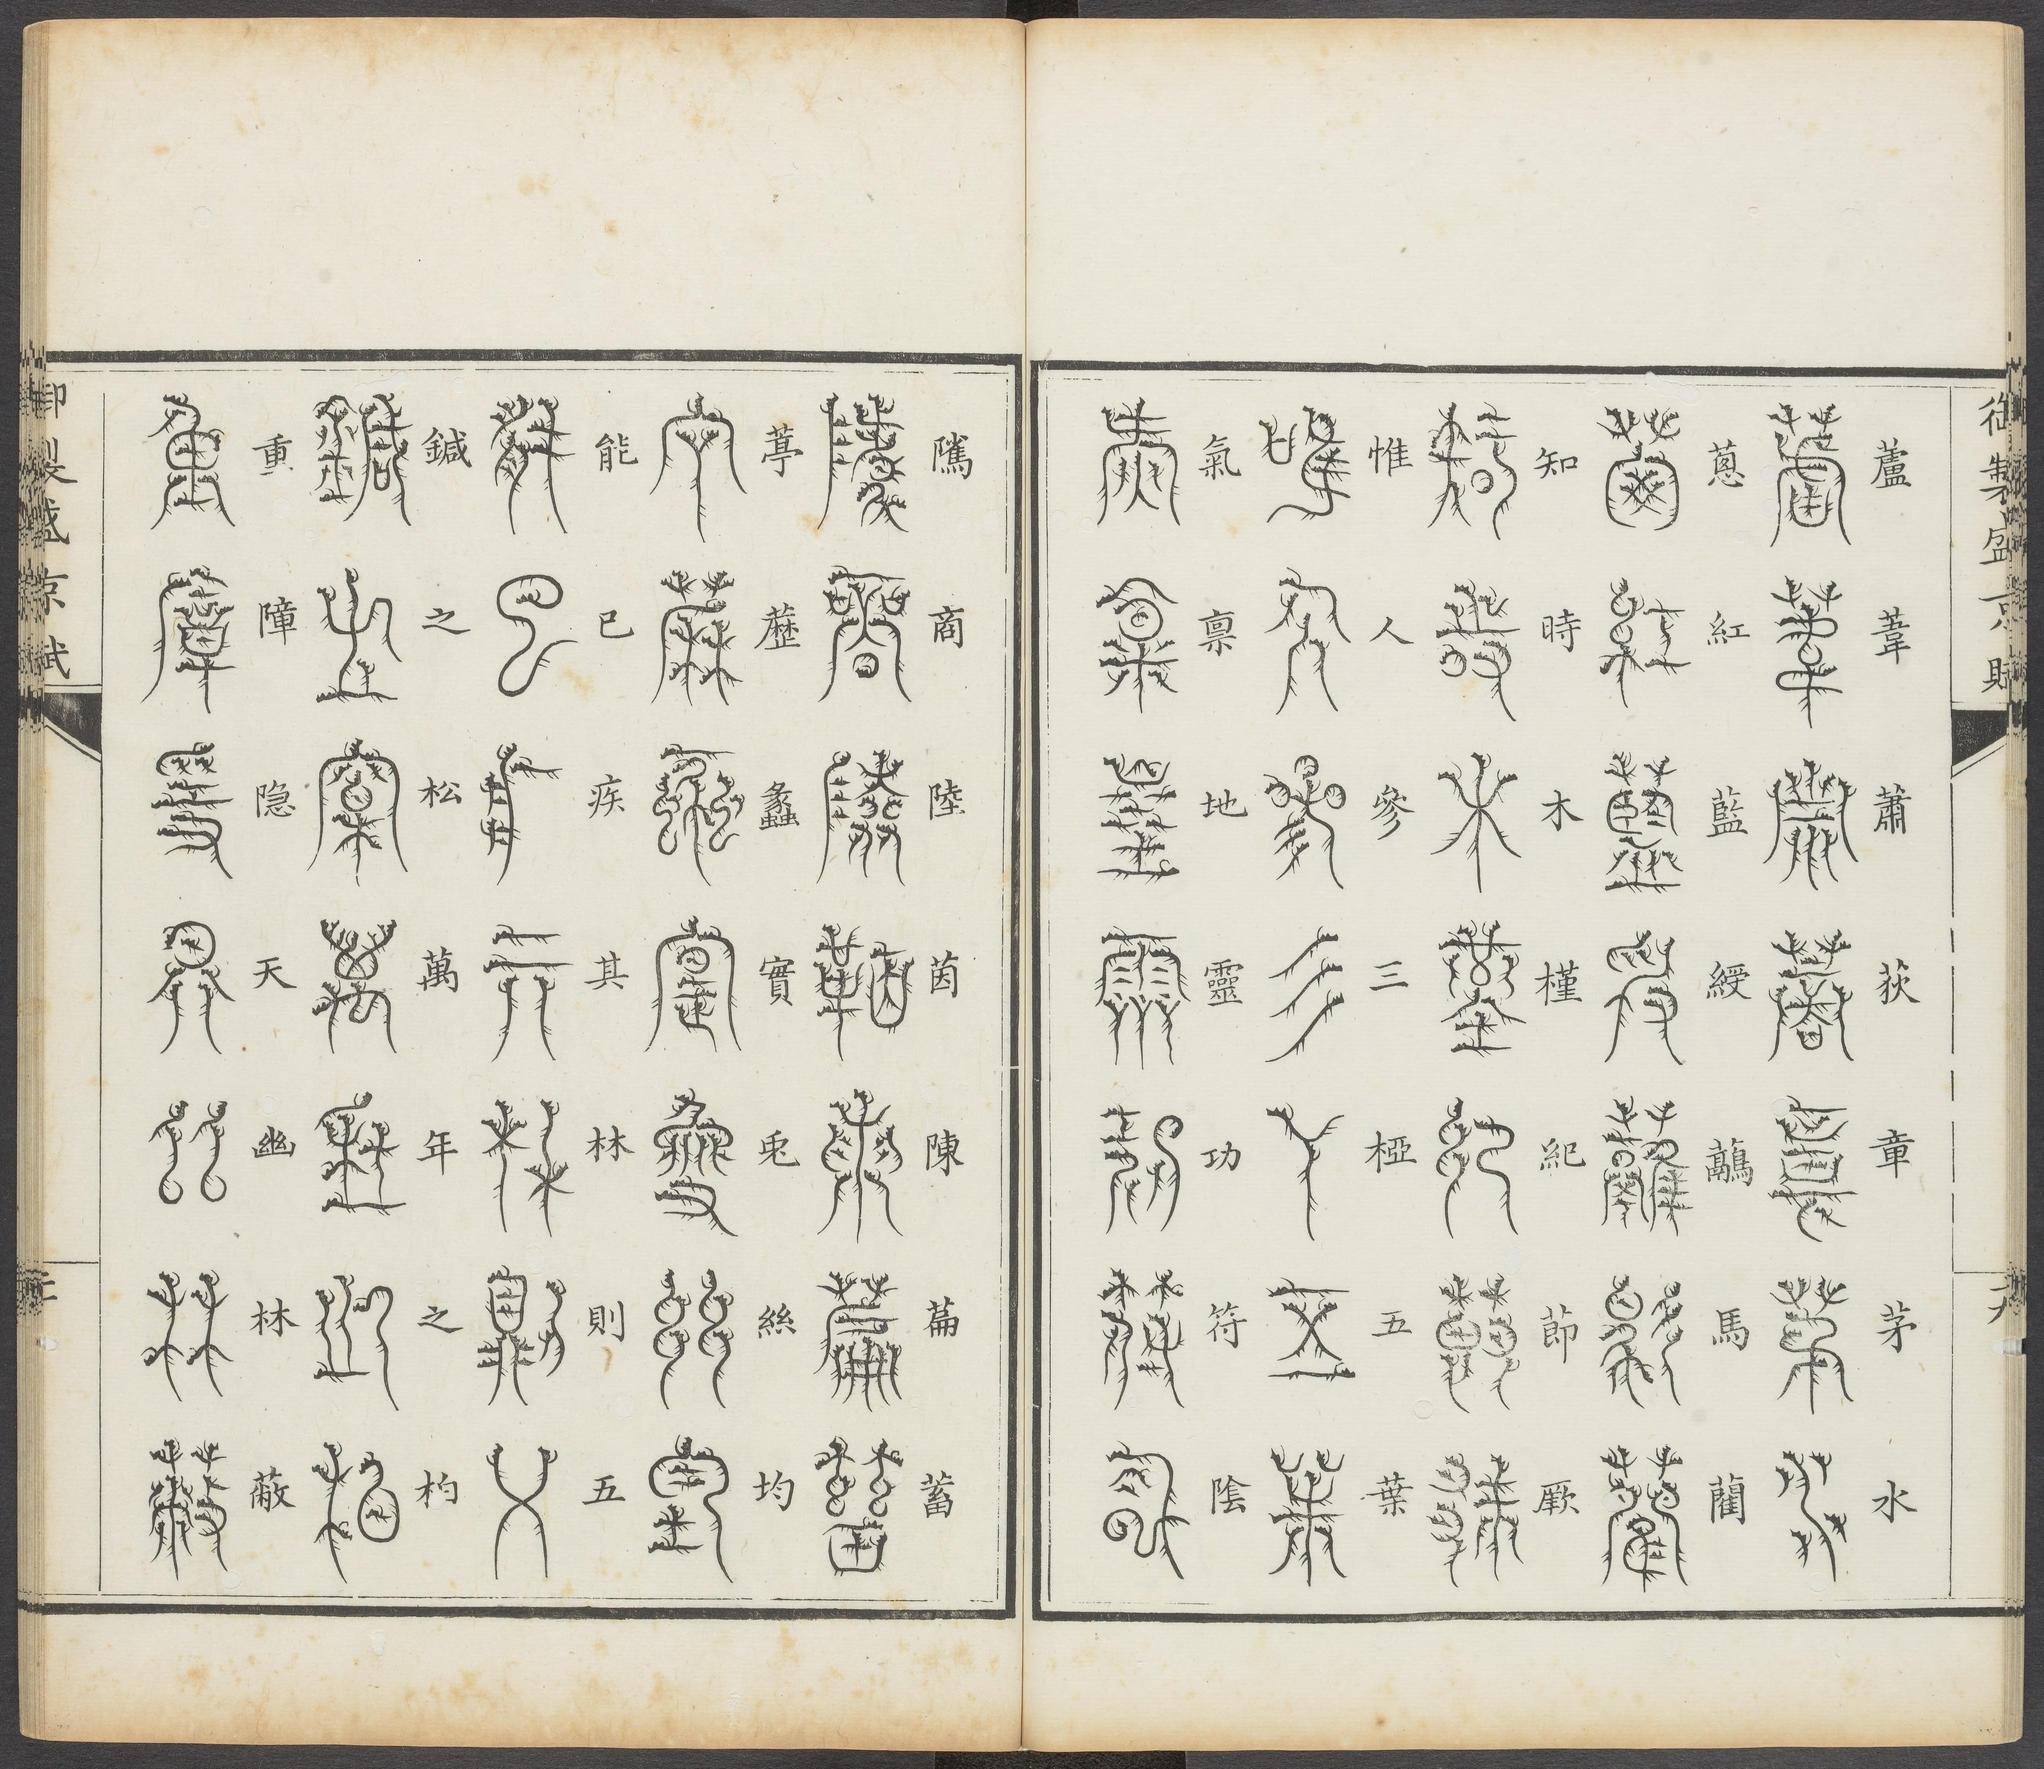 御製盛京賦
蘆葦蕭荻章茅水
蔥紅藍綬虉馬藺
知時木槿紀莭厥
惟人參三椏五葉
氣禀地靈功符陰
隲商陸茵陳萹蓄
葶藶蠡實兎絲均
能已疾其林則五
鍼之松萬年之杓
重障隐天幽林蔽
御製盛京賦